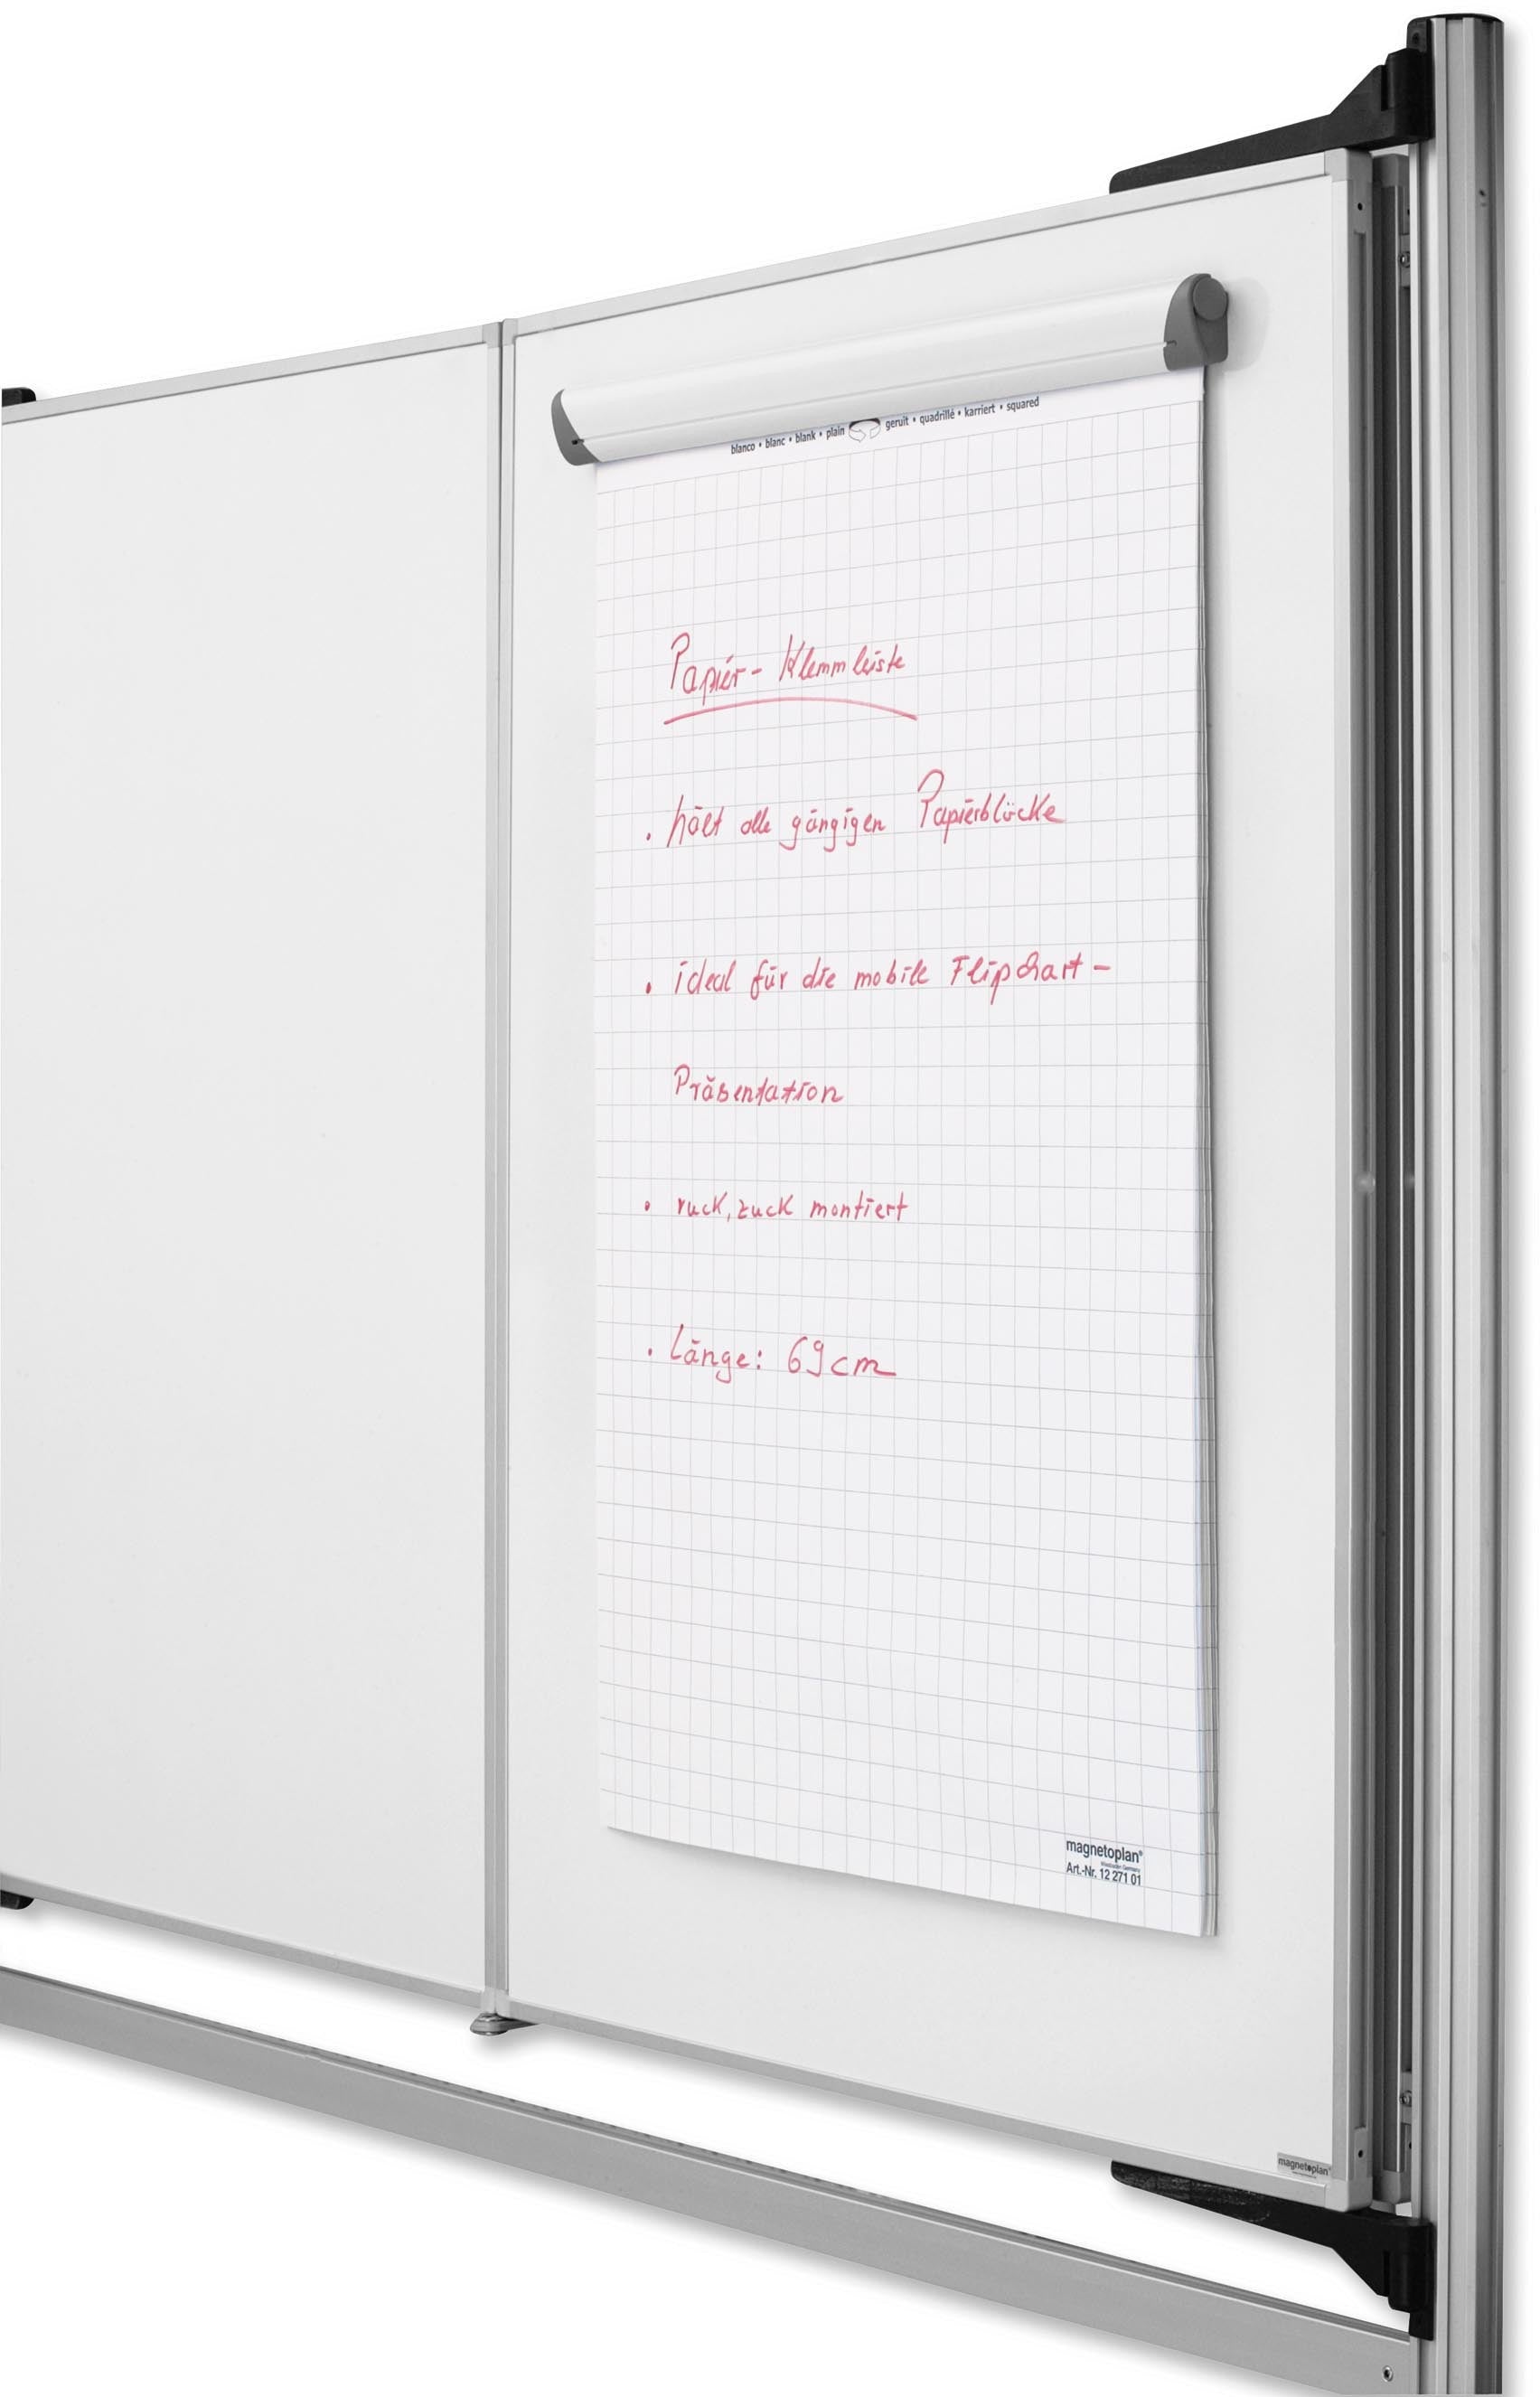 blanco • blanc • blank • plain geruit • quadrillé • karriert • squared
Papier- Klemmleiste
• hält alle gängigen Papierblöcke
• ideal für die mobile Flipchart-
Präsentation
• ruck, zuck montiert
• Länge: 69cm
magnetoplan®
Art.-Nr. 12 271 01
magnetoplan®